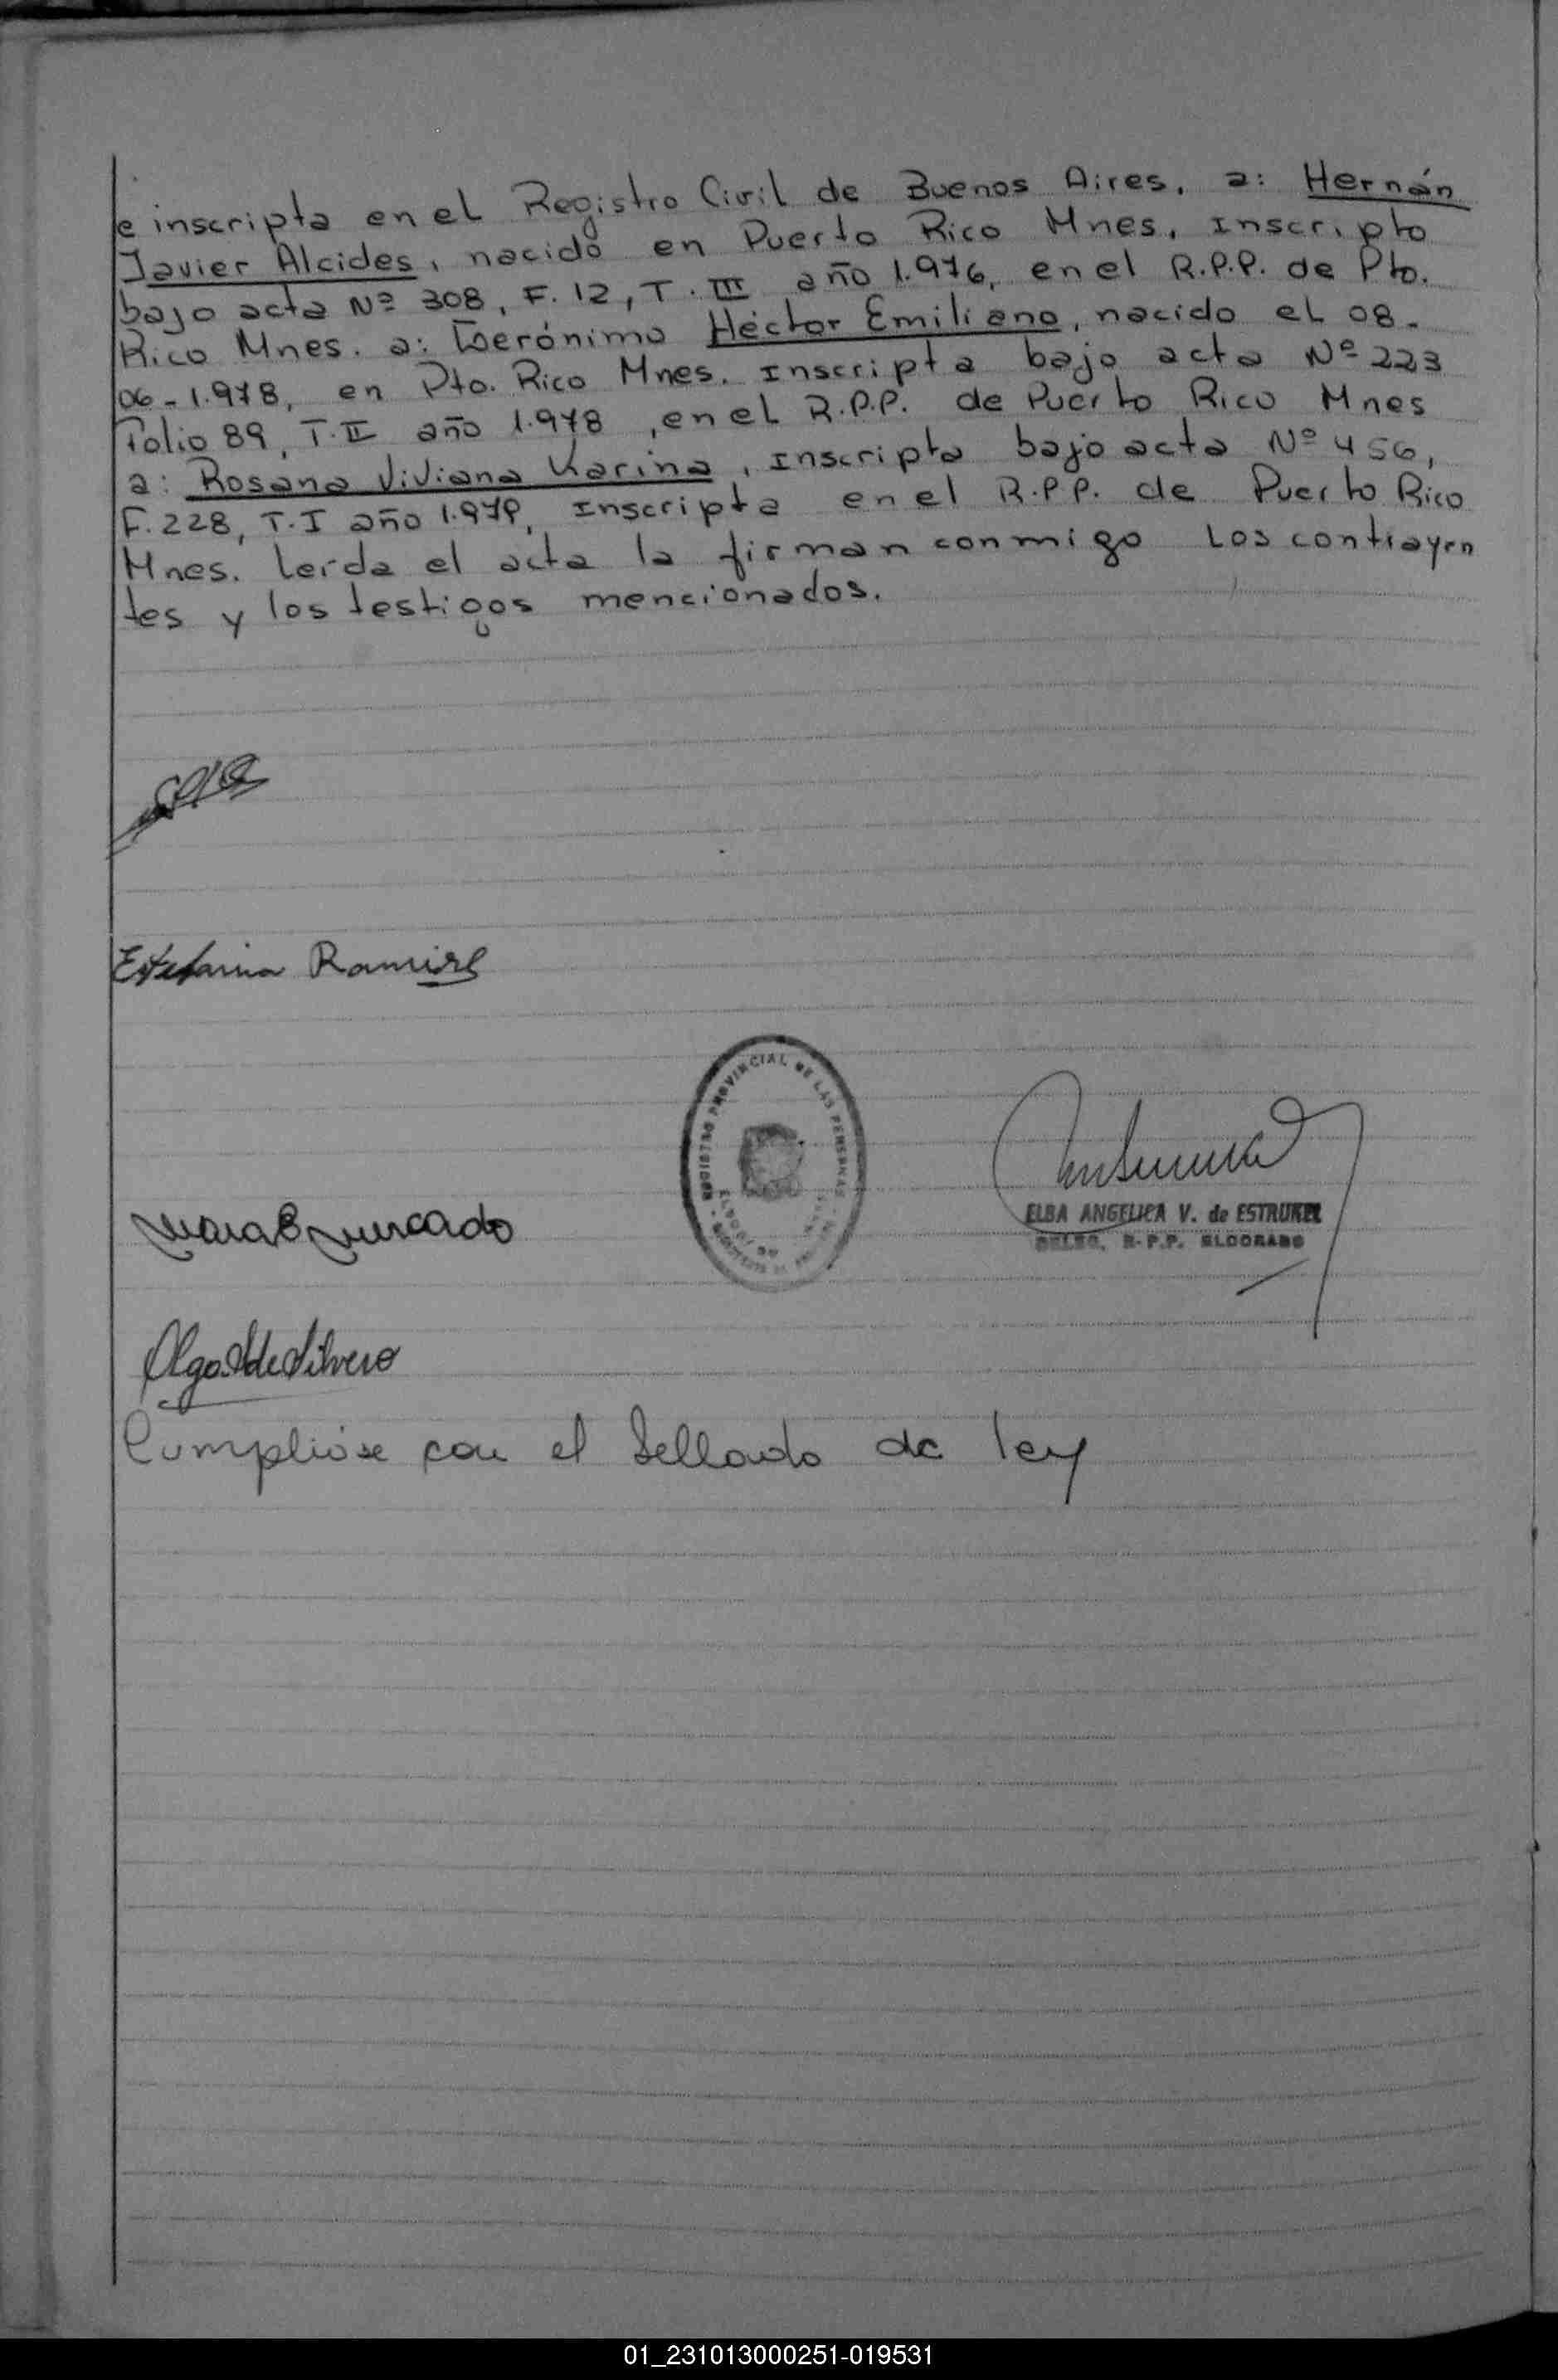 e inscripta en el Registro Civil de Buenos Aires, a: Hernán
Javier Alcides, nacido en Puerto Rico Mnes, Inscripto
bajo acta Nº 308, F. 12, T. III año 1.976, en el R.P.P. de Pto.
Rico Mnes. a: Gerónimo Héctor Emiliano, nacido el 08-
06-1.978, en Pto. Rico Mnes. Inscripta bajo acta Nº 223
Folio 89, T. II año 1.978, en el R.P.P. de Puerto Rico Mnes
a: Rosana Viviana Karina, Inscripta bajo acta Nº 456,
F. 228, T. I año 1.979, Inscripta en el R.P.P. de Puerto Rico
Mnes. Leída el acta la firman conmigo los contrayen
tes y los testigos mencionados.
Ramirez
REGISTRO PROVINCIAL DE LAS PERSONAS
ELBA ANGELICA V. de ESTRUKEL
DELEG. R.P.P. ELDORADO
Mercado
Olga de Silvero
Cumplióse con el Sellado de ley
01_231013000251-019531